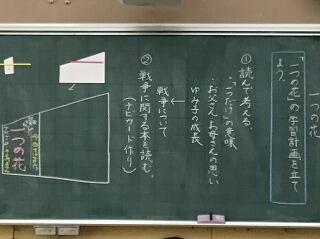 一つの花
「一つの花」の学習計画を立て
よう。
① 読んで考える
・「一つだけ」の意味
・お父さん、お母さんの思い
ゆみ子の成長
戦争について
② 戦争に関する本を読む。
(ナビカード作り)
一つの花